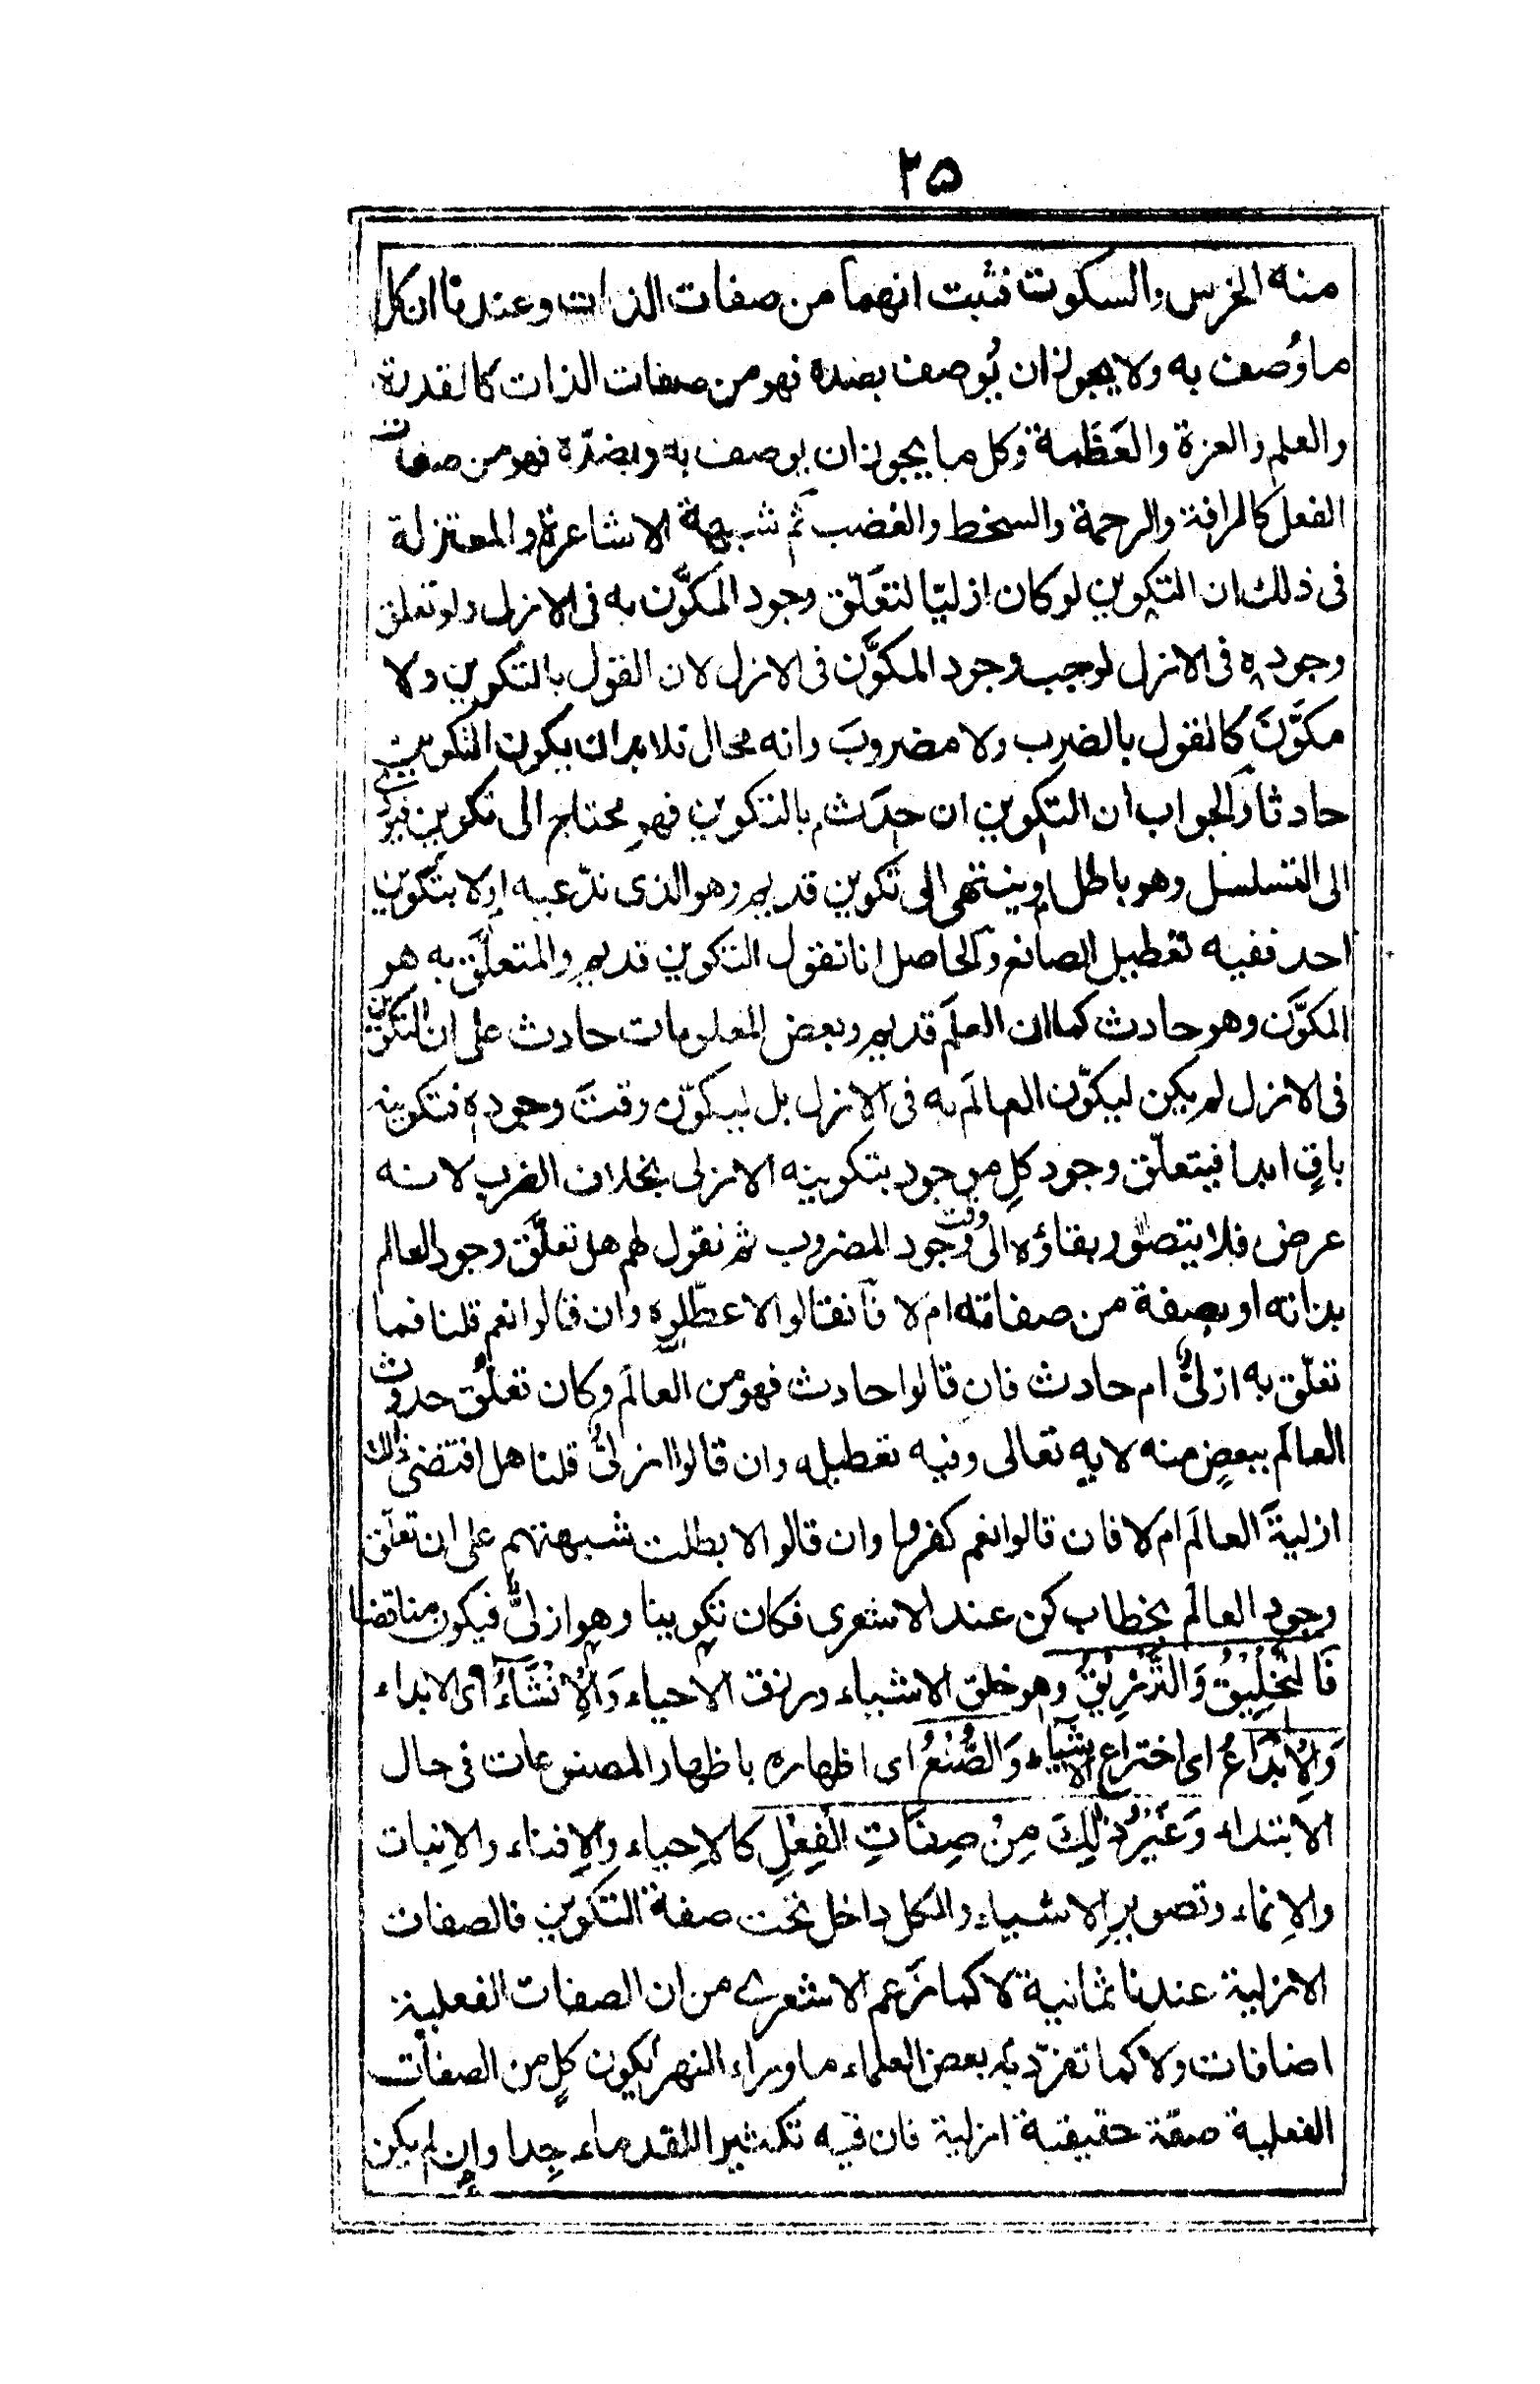 ٢٥
منه الخرس والسكوت فثبت انهما من صفات الذات وعندنا ان كل
ما وُصف به ولا يجوز ان يُوصف بضده فهو من صفات الذات كالقدرة
والعلم والعزة والعَظَمة وكل ما يجوز ان يوصف به وبضدّه فهو من صفات
الفعل كالرافة والرحمة والسخط والغضب ثم شبهة الاشاعرة والمعتزلة
فى ذلك ان التكوين لو كان ازليّا لتعلّق وجود المكوَّن به فى الازل ولو تعلق
وجوده فى الازل لوجب وجود المكوَّن فى الازل لان القول بالتكوين ولا
مكوَّنَ كالقول بالضرب ولا مضروبَ وانه محال فلا بد ان يكون التكوين
حادثا والجواب ان التكوين ان حدَث بالتكوين فهو محتاج الى تكوين فيؤدى
الى التسلسل وهو باطل او ينتهى الى تكوين قديم وهو الذى ندّعيه او لا بتكوين
احد ففيه تعطيل الصانع والحاصل انا نقول التكوين قديم والمتعلَّق به هو
المكوَّن وهو حادث كما ان العلمَ قديم وبعض المعلومات حادث على ان التكوين
فى الازل لم يكن ليكوّن العالَم به فى الازل بل ليكوّن وقتَ وجوده فتكوينه
باقٍ ابدا فيتعلّق وجود كلِ موجود بتكوينه الازلى بخلاف الضرب لانه
عرض فلا يتصوّر بقاؤه الى وقت وجود المضروب ثم نقول لهم هل تعلَّق وجود العالم
بذاته او بصفة من صفاته ام لا فان قالوا لا عطّلوه وان قالوا نعم قلنا فما
تعلّق به ازلىٌّ ام حادث فان قالوا حادث فهو من العالَم وكان تعلُّق حدوث
العالَم ببعضٍ منه لا به تعالى وفيه تعطيله وان قالوا ازلىٌّ قلنا هل اقتضى ذلك
ازليةَ العالَم ام لا فان قالوا نعم كفروا وان قالوا لا بطلت شبهتهم على ان تعلّق
وجود العالَم بخطاب كن عند الاشعرى فكان تكوينا وهو ازلىٌّ فيكون مناقضا
فَالتَّخْلِيْقُ وَالتَّرْزِيْقُ وهو خلق الاشياء ورزق الاحياء وَالْاِنْشَاءُ اى الابداء
وَالْاِبْدَاعُ اى اختراع الاشياء وَالصُّنْعُ اى اظهاره باظهار المصنوعات فى حال
الابتداء وَغَيْرُ ذٰلِكَ مِنْ صِفَاتِ الْفِعْلِ كالاِحياء والاِفناء والاِنبات
والاِنماء وتصوير الاشياء والكل داخل تحت صفة التكوين فالصفات
الازلية عندنا ثمانية لا كما زعم الاشعرى من ان الصفات الفعلية
اضافات ولا كما تفرّد به بعض العلماء ماوراء النهر بكون كلٍ من الصفات
الفعلية صفة حقيقية ازلية فان فيه تكثير القدماء جدا وان لم يكن